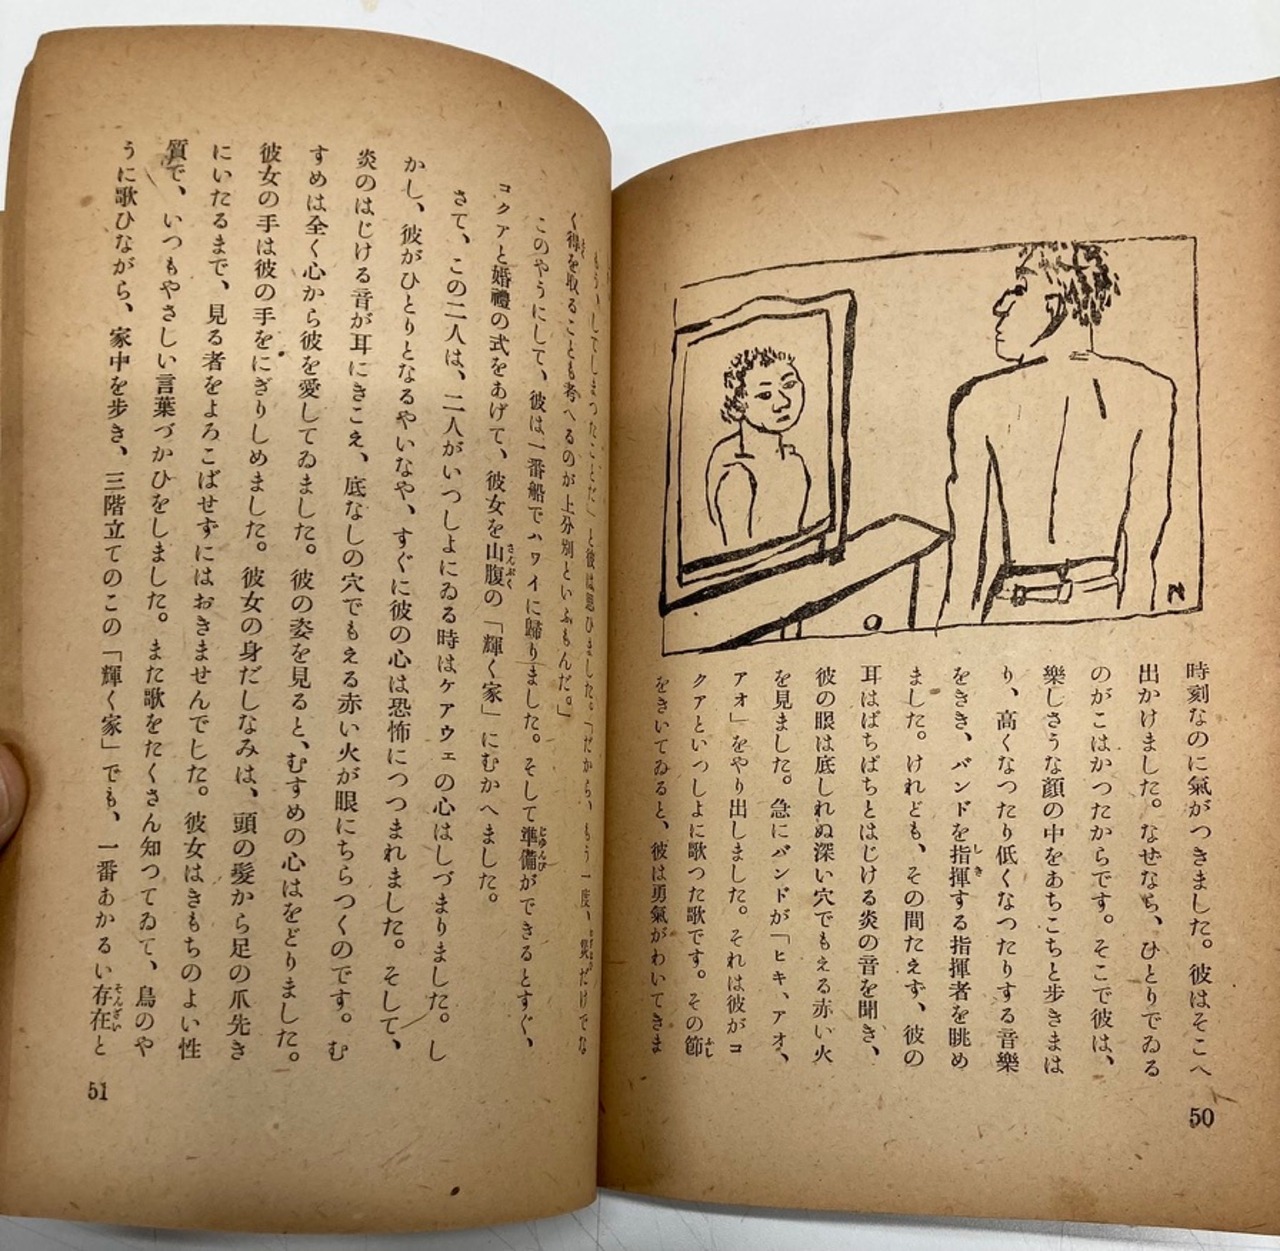 時刻なのに氣がつきました。彼はそこへ
出かけました。なぜなら、ひとりでゐる
のがこはかつたからです。そこで彼は、
樂しさうな顔の中をあちこちと歩きまは
り、高くなつたり低くなつたりする音樂
をきき、バンドを指揮する指揮者を眺め
ました。けれども、その間たえず、彼の
耳はぱちぱちとはじける炎の音を聞き、
彼の眼は底しれぬ深い穴でもえる赤い火
を見ました。急にバンドが「ヒキ、アオ、
アオ」をやり出しました。それは彼がコ
クアといつしよに歌つた歌です。その節
をきいてゐると、彼は勇氣がわいてきま
50
もう、してしまつたことだ」と彼は思ひました。「だから、もう一度、だけでな
く得を取ることも考へるのが上分別といふもんだ。」
このやうにして、彼は一番船でハワイに歸りました。そして準備ができるとすぐ、
コクアと婚禮の式をあげて、彼女を山腹の「輝く家」にむかへました。
さて、この二人は、二人がいつしよにゐる時はケアウェの心はしづまりました。し
かし、彼がひとりとなるやいなや、すぐに彼の心は恐怖につつまれました。そして、
炎のはじける音が耳にきこえ、底なしの穴でもえる赤い火が眼にちらつくのです。む
すめは全く心から彼を愛してゐました。彼の姿を見ると、むすめの心はをどりました。
彼女の手は彼の手をにぎりしめました。彼女の身だしなみは、頭の髮から足の爪先き
にいたるまで、見る者をよろこばせずにはおきませんでした。彼女はきもちのよい性
質で、いつもやさしい言葉づかひをしました。また歌をたくさん知つてゐて、鳥のや
うに歌ひながら、家中を歩き、三階立てのこの「輝く家」でも、一番あかるい存在と
51